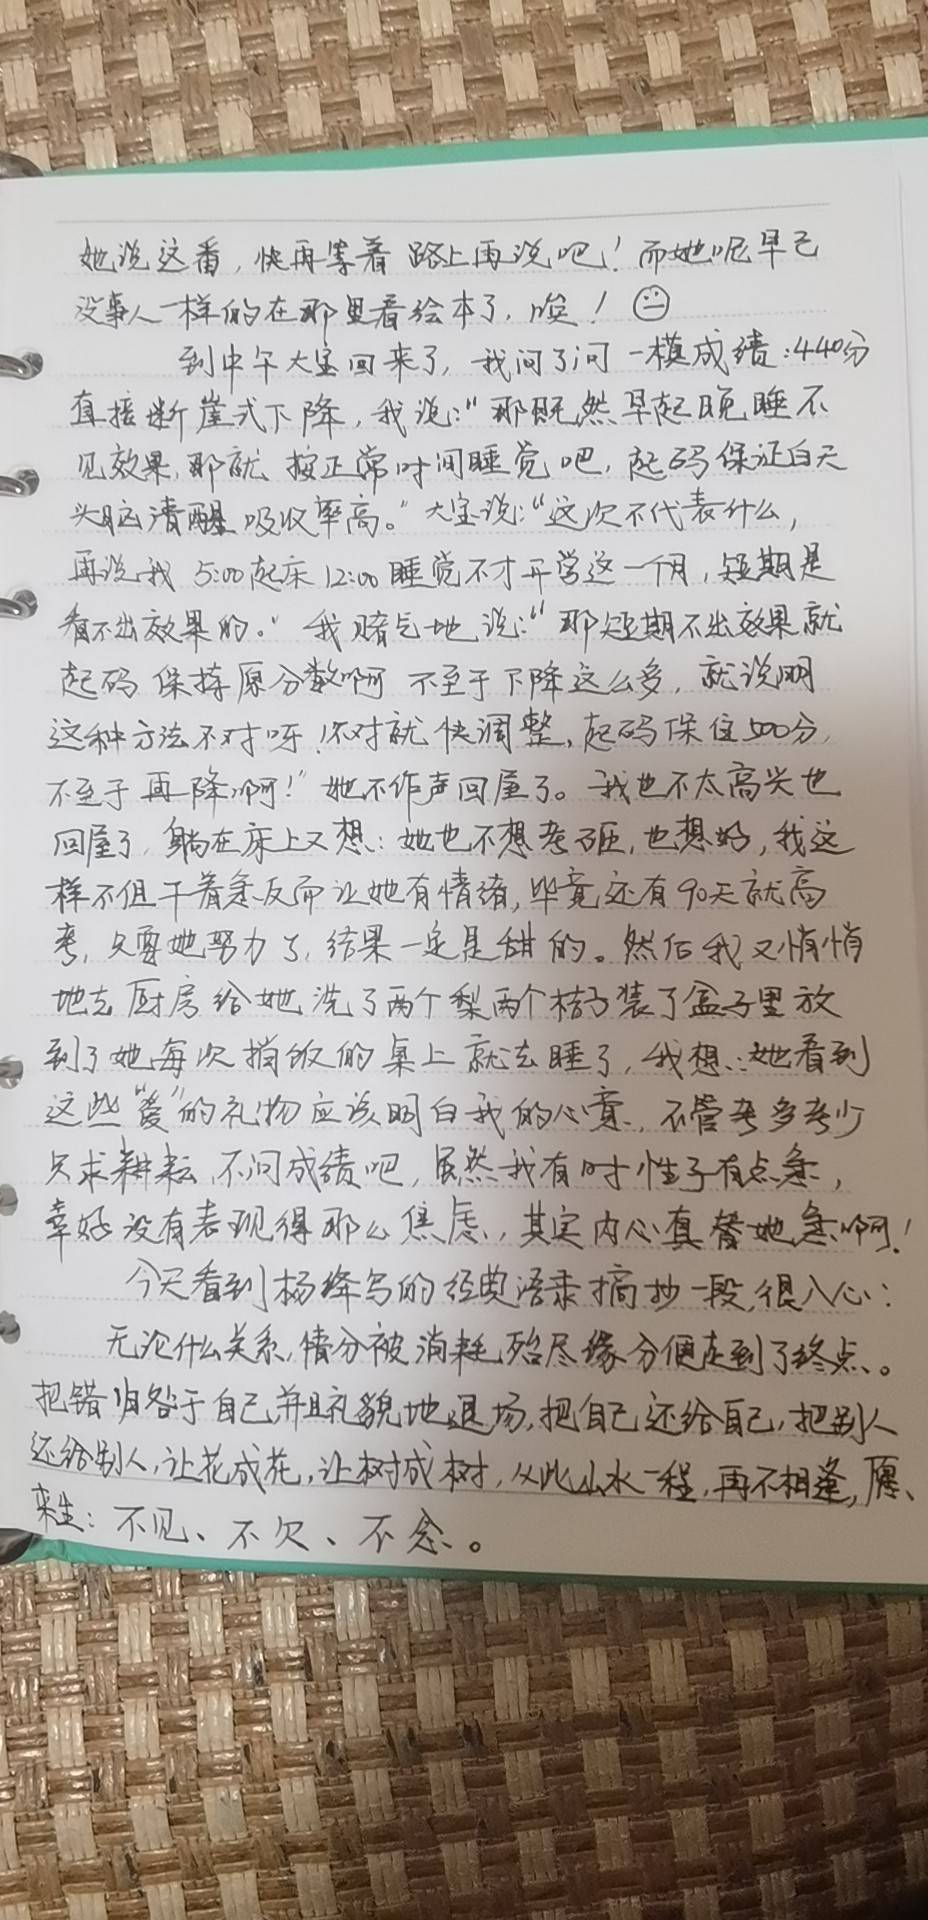 她说这番，快再等着路上再说吧！而她呢早已
没事人一样的在那里看绘本了，唉！
到中午大宝回来了，我问了问一模成绩：440分
直接断崖式下降，我说：“那既然早起晚睡不
见效果，那就按正常时间睡觉吧，起码保证白天
头脑清醒吸收率高。”大宝说：“这次不代表什么，
再说我5:00起床12:00睡觉不才开学这一个月，短期是
看不出效果的。”我赌气地说：“那短期不出效果就
起码保持原分数啊不至于下降这么多，就说明
这种方法不对呀！不对就快调整，起码保住500分，
不至于再降啊！”她不作声回屋了。我也不太高兴也
回屋了，躺在床上又想：她也不想考砸，也想好，我这
样不但干着急反而让她有情绪，毕竟还有90天就高
考，只要她努力了，结果一定是甜的。然后我又悄悄
地去厨房给她洗了两个梨两个桔子装了盒子里放
到了她每次捎饭的桌上就去睡了，我想：她看到
这些“爱”的礼物应该明白我的心意，不管考多考少
只求耕耘，不问成绩吧，虽然我有时性子有点急，
幸好没有表现得那么焦虑，其实内心真替她急啊！
今天看到杨绛写的经典语录摘抄一段，很入心：
无论什么关系，情分被消耗殆尽缘分便走到了终点。
把错归咎于自己并且礼貌地退场，把自己还给自己，把别人
还给别人，让花成花，让树成树，从此山水一程，再不相逢，愿、
来生：不见、不欠、不念。